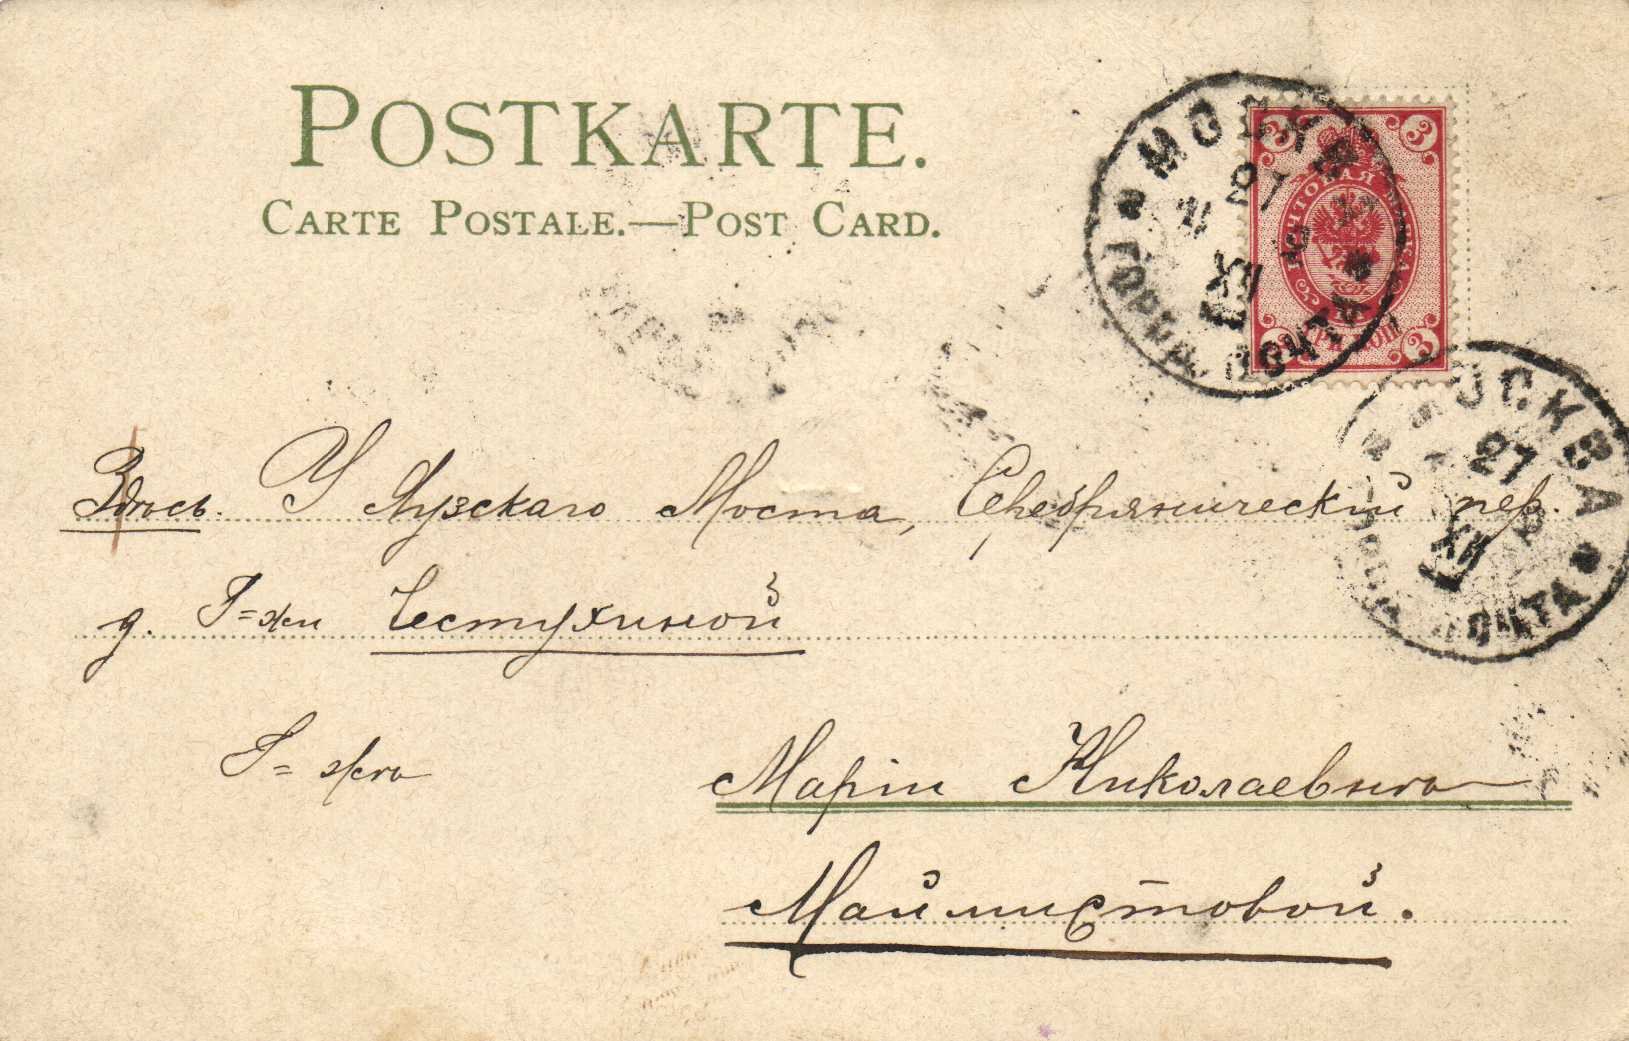 POSTKARTE.
CARTE POSTALE.—POST CARD.
МОСКВА
27
XII
ГОРОД. ПОЧТА
3 3
ПОЧТОВАЯ МАРКА
ТРИ КОП.
3 3
МОСКВА
27
XII
ПОЧТА
Здѣсь. У Яузскаго Моста, Серебрянический пер.
д. Г=жи Честухиной
Г=жѣ Маріи Николаевнѣ
Маймистовой.